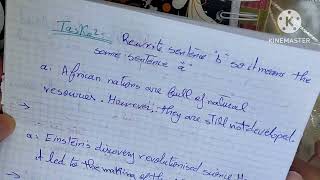 KINEMASTER
Task2: Rewrite sentence "b" so it means the
same sentence "a"
a: African nations are full of natural
resources. However, they are still not developed.
→
a: Einstein's discovery revolutionised science
it led to the making of the